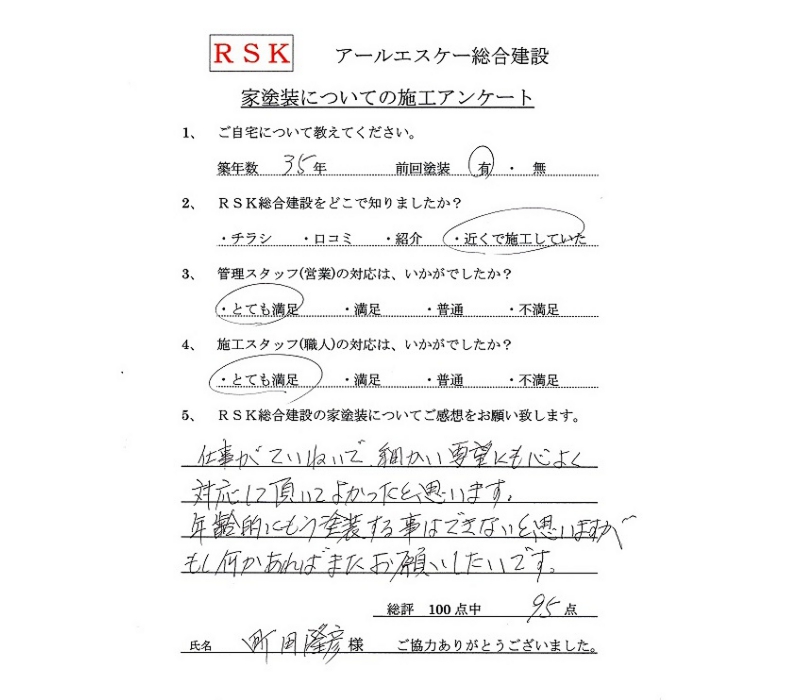 RSK アールエスケー総合建設
家塗装についての施工アンケート
1、 ご自宅について教えてください。
築年数 35年 前回塗装 有 ・ 無
2、 RSK総合建設をどこで知りましたか？
・チラシ ・口コミ ・紹介 ・近くで施工していた
3、 管理スタッフ(営業)の対応は、いかがでしたか？
・とても満足 ・満足 ・普通 ・不満足
4、 施工スタッフ(職人)の対応は、いかがでしたか？
・とても満足 ・満足 ・普通 ・不満足
5、 RSK総合建設の家塗装についてご感想をお願い致します。
仕事がていねいで、細かい要望にも心よく
対応して頂いてよかったと思います。
年齢的にもう塗装する事はできないと思いますが
もし何かあればまたお願いしたいです。
総評 100点中 95点
氏名 町田隆彦様 ご協力ありがとうございました。